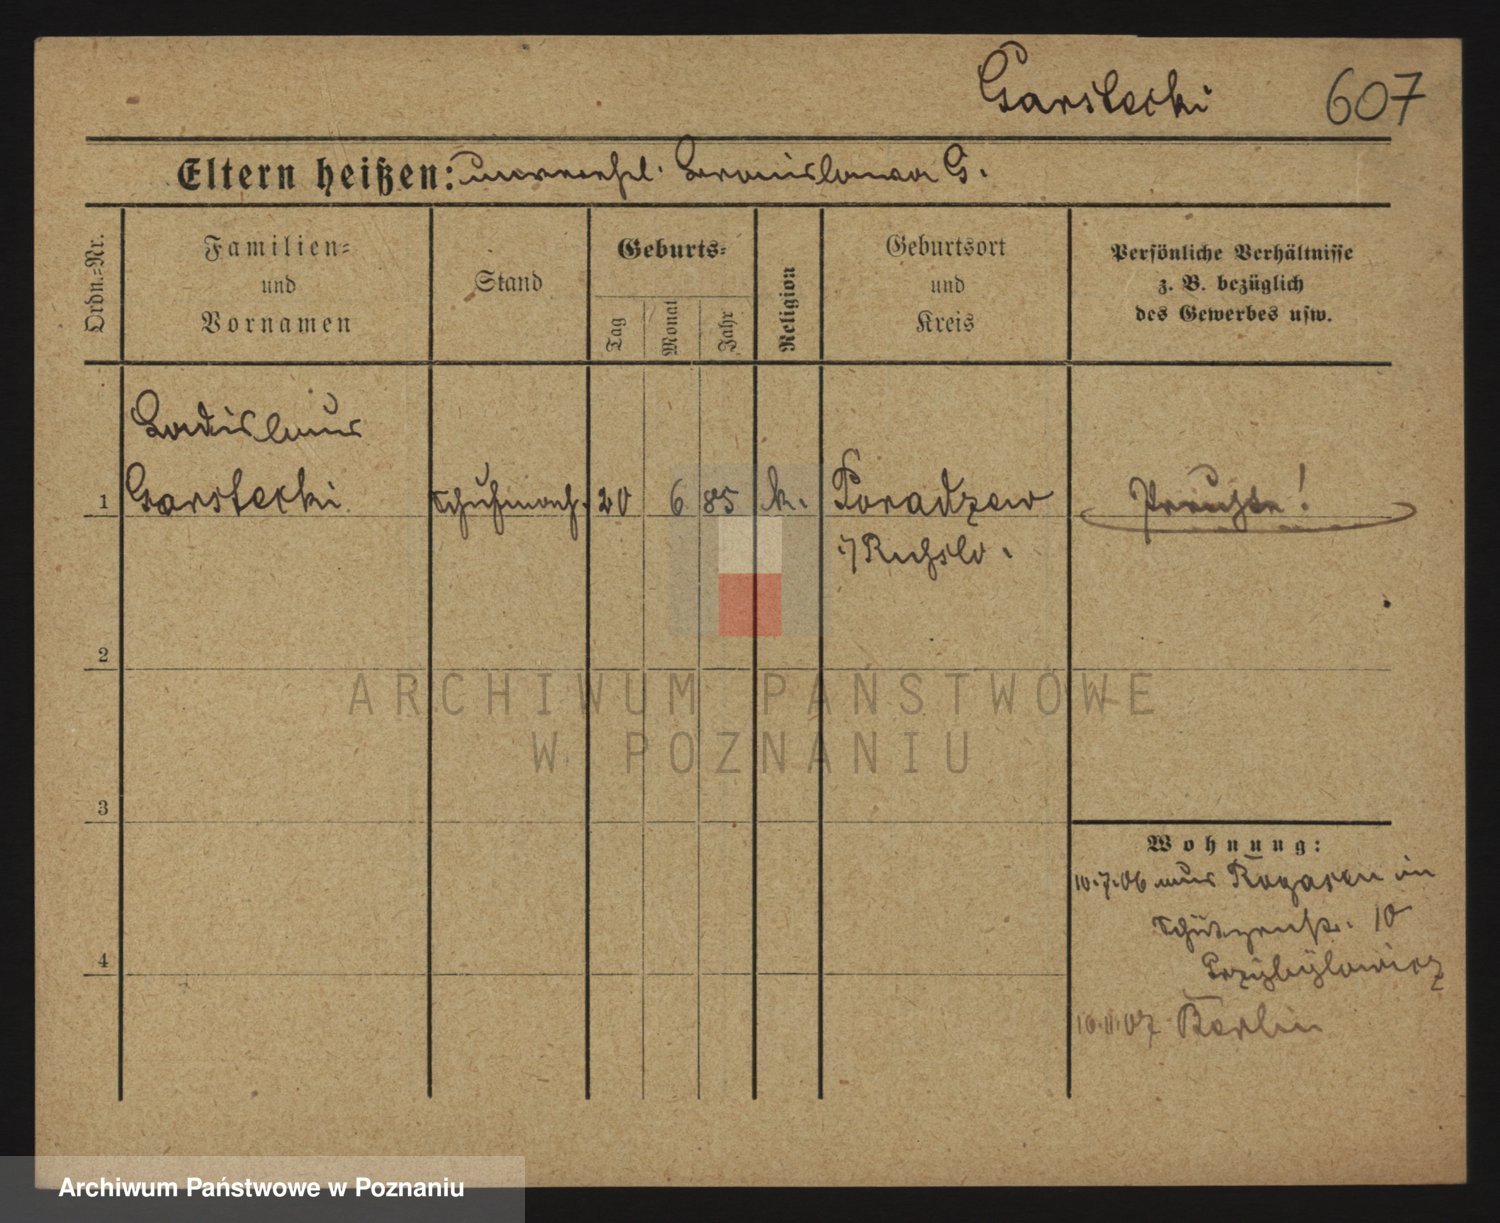 Garstecki 607
Eltern heißen: unverehel. Bronislawa G.
Ordn.=Nr.
Familien=
und
Vornamen
Stand
Geburts=
Tag
Monat
Jahr
Religion
Geburtsort
und
Kreis
Persönliche Verhältnisse
z. B. bezüglich
des Gewerbes usw.
Ladislaus
1 Garstecki Schuhmach. 20 6 85 k. Poradzew Preuße!
2
ARCHIWUM PAŃSTWOWE
W POZNANIU
3
Wohnung:
10.7.06 aus Rogasen in
Schützenstr. 10
4
Przybylowicz
10.11.07 Berlin
Archiwum Państwowe w Poznaniu